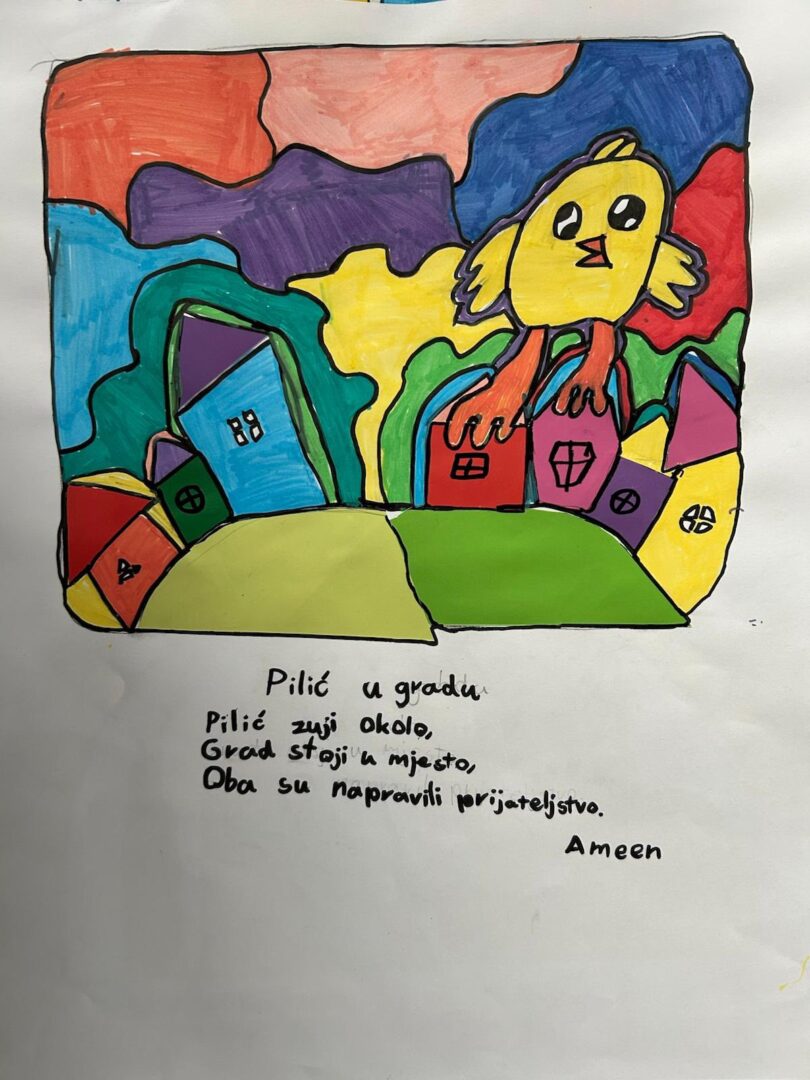 Pilić u gradu
Pilić zuji okolo,
Grad stoji u mjesto,
Oba su napravili prijateljstvo.
Ameen